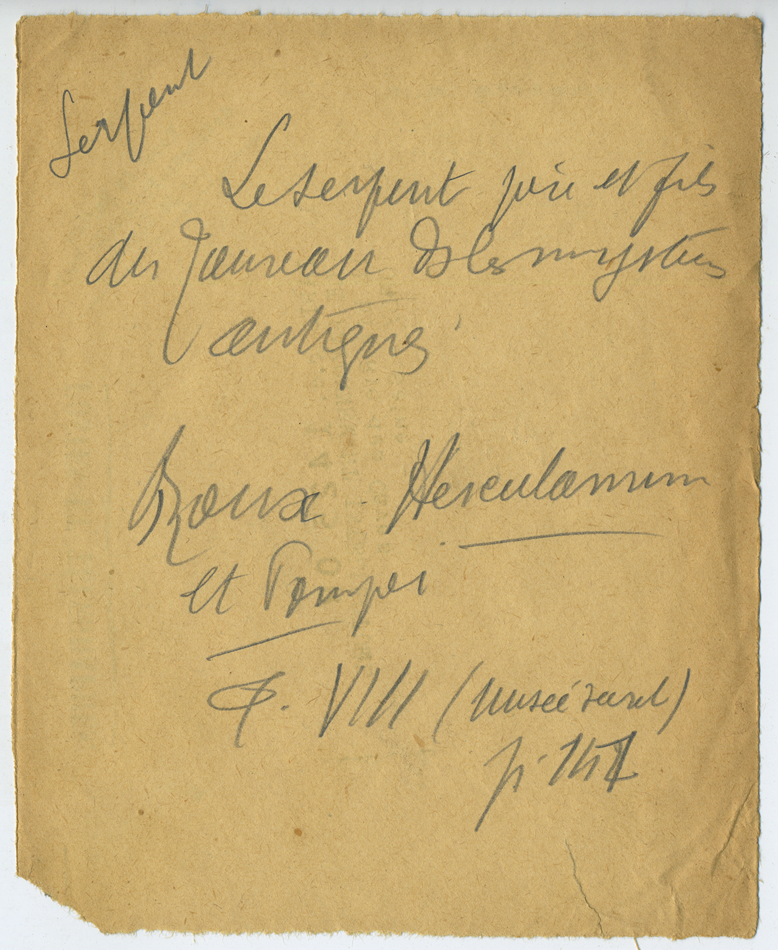 Serpent
Le serpent père et fils
du Taureau ds les mystères
antiques
Roux. Herculanum
et Pompei
T. VIII (Musée secret)
p.